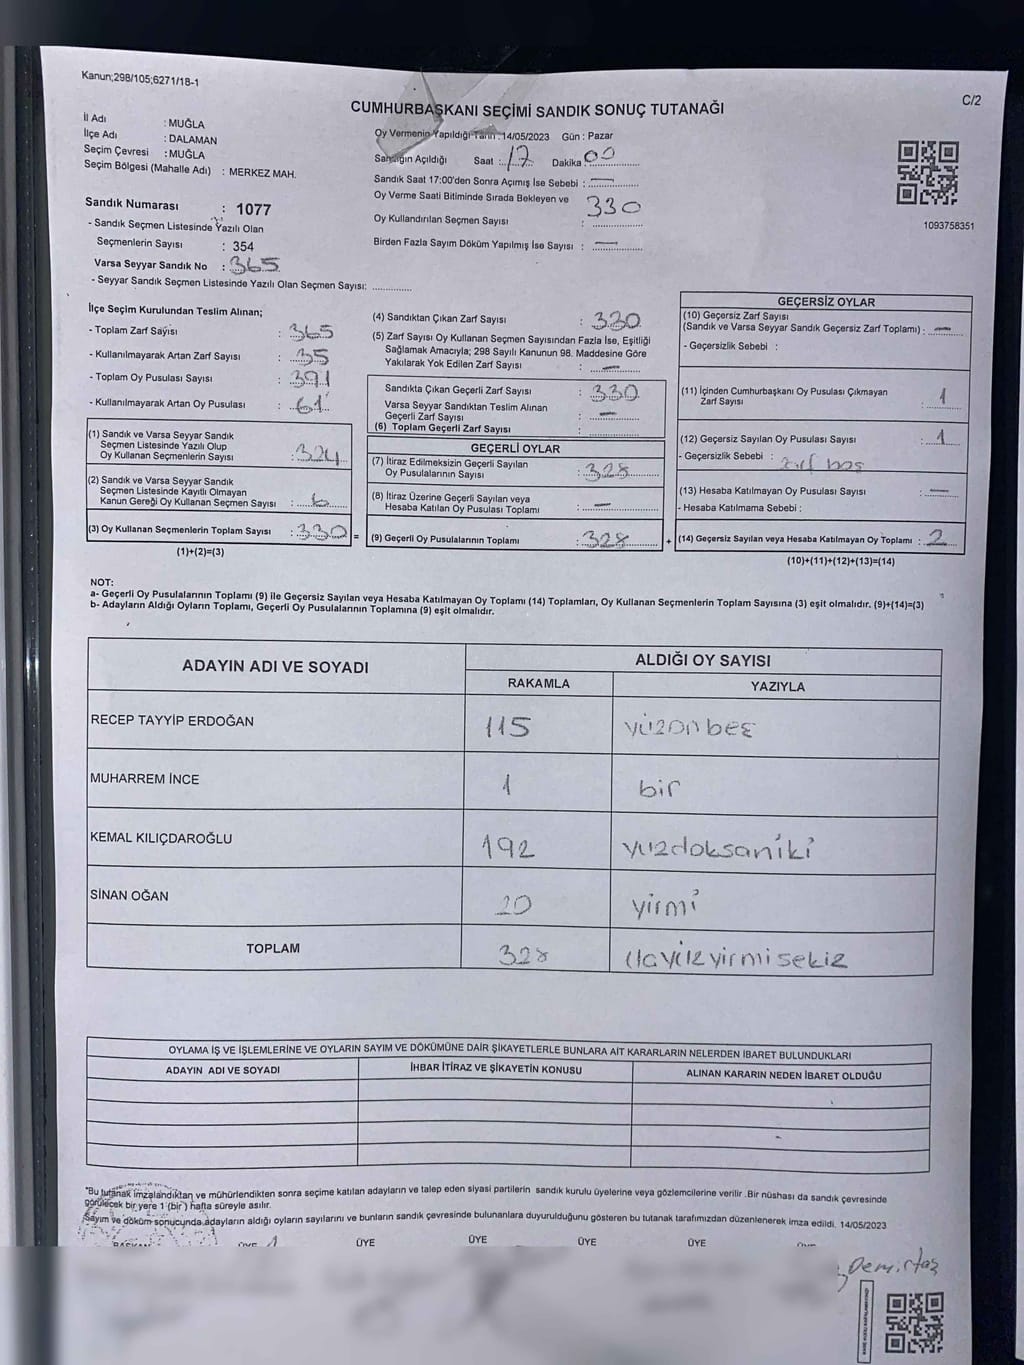 Kanun;298/105;6271/18-1
C/2
CUMHURBAŞKANI SEÇİMİ SANDIK SONUÇ TUTANAĞI
İl Adı : MUĞLA
İlçe Adı : DALAMAN
Seçim Çevresi : MUĞLA
Seçim Bölgesi (Mahalle Adı) : MERKEZ MAH.
Oy Vermenin Yapıldığı Tarih : 14/05/2023 Gün : Pazar
Sandığın Açıldığı Saat : 17 Dakika : 00
Sandık Saat 17:00'den Sonra Açımış İse Sebebi : —
Oy Verme Saati Bitiminde Sırada Bekleyen ve
Oy Kullandırılan Seçmen Sayısı : 330
Birden Fazla Sayım Döküm Yapılmış İse Sayısı : —
1093758351
Sandık Numarası : 1077
- Sandık Seçmen Listesinde Yazılı Olan
Seçmenlerin Sayısı : 354
Varsa Seyyar Sandık No : 365
- Seyyar Sandık Seçmen Listesinde Yazılı Olan Seçmen Sayısı:
İlçe Seçim Kurulundan Teslim Alınan;
- Toplam Zarf Sayısı : 365
- Kullanılmayarak Artan Zarf Sayısı : 35
- Toplam Oy Pusulası Sayısı : 391
- Kullanılmayarak Artan Oy Pusulası : 61
(1) Sandık ve Varsa Seyyar Sandık
Seçmen Listesinde Yazılı Olup
Oy Kullanan Seçmenlerin Sayısı : 324
(2) Sandık ve Varsa Seyyar Sandık
Seçmen Listesinde Kayıtlı Olmayan
Kanun Gereği Oy Kullanan Seçmen Sayısı : 6
(3) Oy Kullanan Seçmenlerin Toplam Sayısı : 330 =
(1)+(2)=(3)
(4) Sandıktan Çıkan Zarf Sayısı : 330
(5) Zarf Sayısı Oy Kullanan Seçmen Sayısından Fazla İse, Eşitliği
Sağlamak Amacıyla; 298 Sayılı Kanunun 98. Maddesine Göre
Yakılarak Yok Edilen Zarf Sayısı : —
Sandıkta Çıkan Geçerli Zarf Sayısı : 330
Varsa Seyyar Sandıktan Teslim Alınan
Geçerli Zarf Sayısı : —
(6) Toplam Geçerli Zarf Sayısı :
GEÇERLİ OYLAR
(7) İtiraz Edilmeksizin Geçerli Sayılan
Oy Pusulalarının Sayısı : 328
(8) İtiraz Üzerine Geçerli Sayılan veya
Hesaba Katılan Oy Pusulası Toplamı : —
(9) Geçerli Oy Pusulalarının Toplamı : 328 +
GEÇERSİZ OYLAR
(10) Geçersiz Zarf Sayısı
(Sandık ve Varsa Seyyar Sandık Geçersiz Zarf Toplamı) : —
- Geçersizlik Sebebi :
(11) İçinden Cumhurbaşkanı Oy Pusulası Çıkmayan
Zarf Sayısı : 1
(12) Geçersiz Sayılan Oy Pusulası Sayısı : 1
- Geçersizlik Sebebi : zarf boş
(13) Hesaba Katılmayan Oy Pusulası Sayısı : —
- Hesaba Katılmama Sebebi :
(14) Geçersiz Sayılan veya Hesaba Katılmayan Oy Toplamı : 2
(10)+(11)+(12)+(13)=(14)
NOT:
a- Geçerli Oy Pusulalarının Toplamı (9) ile Geçersiz Sayılan veya Hesaba Katılmayan Oy Toplamı (14) Toplamları, Oy Kullanan Seçmenlerin Toplam Sayısına (3) eşit olmalıdır. (9)+(14)=(3)
b- Adayların Aldığı Oyların Toplamı, Geçerli Oy Pusulalarının Toplamına (9) eşit olmalıdır.
ADAYIN ADI VE SOYADI
ALDIĞI OY SAYISI
RAKAMLA YAZIYLA
RECEP TAYYİP ERDOĞAN 115 yüzonbeş
MUHARREM İNCE 1 bir
KEMAL KILIÇDAROĞLU 192 yüzdoksaniki
SİNAN OĞAN 20 yirmi
TOPLAM 328 üçyüzyirmisekiz
OYLAMA İŞ VE İŞLEMLERİNE VE OYLARIN SAYIM VE DÖKÜMÜNE DAİR ŞİKAYETLERLE BUNLARA AİT KARARLARIN NELERDEN İBARET BULUNDUKLARI
ADAYIN ADI VE SOYADI İHBAR İTİRAZ VE ŞİKAYETİN KONUSU ALINAN KARARIN NEDEN İBARET OLDUĞU
"Bu tutanak imzalandıktan ve mühürlendikten sonra seçime katılan adayların ve talep eden siyasi partilerin sandık kurulu üyelerine veya gözlemcilerine verilir .Bir nüshası da sandık çevresinde
görülecek bir yere 1 (bir) hafta süreyle asılır.
Sayım ve döküm sonucunda adayların aldığı oyların sayılarını ve bunların sandık çevresinde bulunanlara duyurulduğunu gösteren bu tutanak tarafımızdan düzenlenerek imza edildi. 14/05/2023
BAŞKAN ÜYE 1 ÜYE ÜYE ÜYE ÜYE
Demirtaş